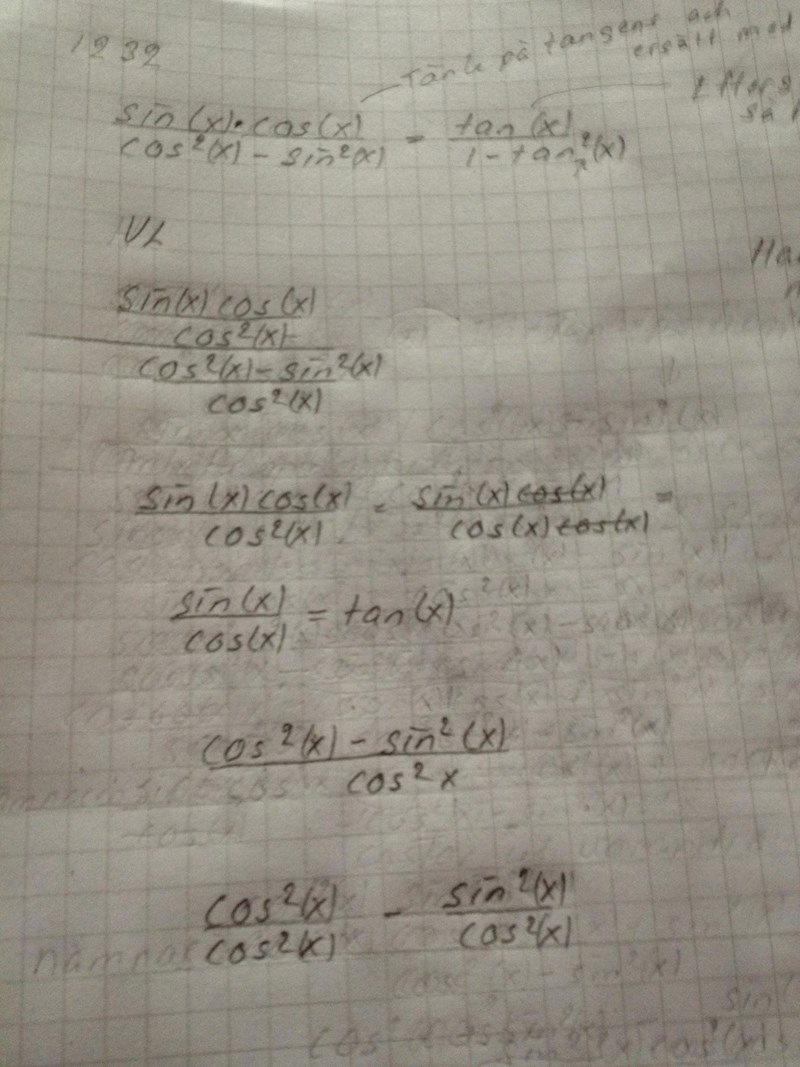 1232
Tänk på tangens och
ersätt med
sin(x)·cos(x)/cos²(x) - sin²(x) = tan(x)/1 - tan²(x)
så
VL
Ha
sin(x) cos(x)
cos²(x)
cos²(x) - sin²(x)
cos²(x)
sin(x) cos(x)/cos²(x) = sin(x) cos(x)/cos(x) cos(x) =
sin(x)/cos(x) = tan(x)
cos²(x) - sin²(x)
cos² x
cos²(x)/cos²(x) - sin²(x)/cos²(x)